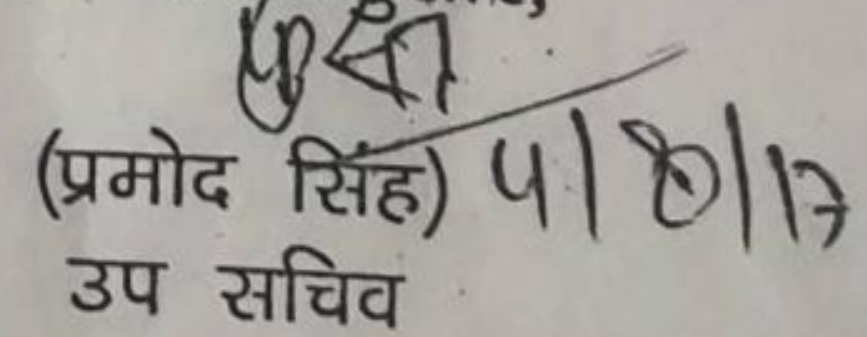 (प्रमोद सिंह) 4/8/17
उप सचिव